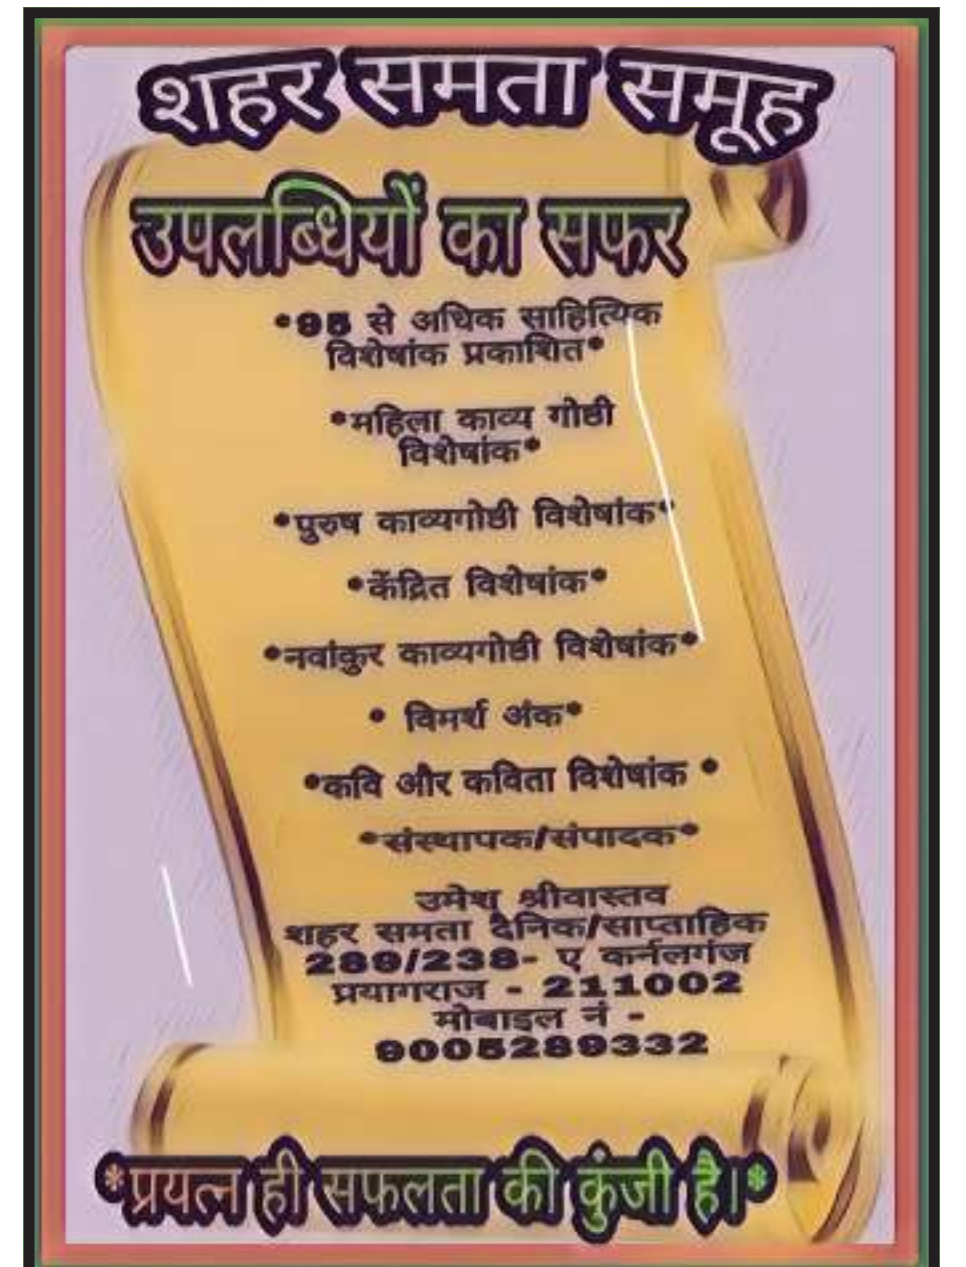 शहर समता समूह
उपलब्धियों का सफर
*95 से अधिक साहित्यिक
विशेषांक प्रकाशित*
*महिला काव्य गोष्ठी
विशेषांक*
*पुरुष काव्यगोष्ठी विशेषांक*
*केंद्रित विशेषांक*
*नवांकुर काव्यगोष्ठी विशेषांक*
* विमर्श अंक*
*कवि और कविता विशेषांक *
*संस्थापक/संपादक*
उमेश श्रीवास्तव
शहर समता दैनिक/साप्ताहिक
289/238- ए कर्नलगंज
प्रयागराज - 211002
मोबाइल नं -
9005289332
*प्रयत्न ही सफलता की कुंजी है।*